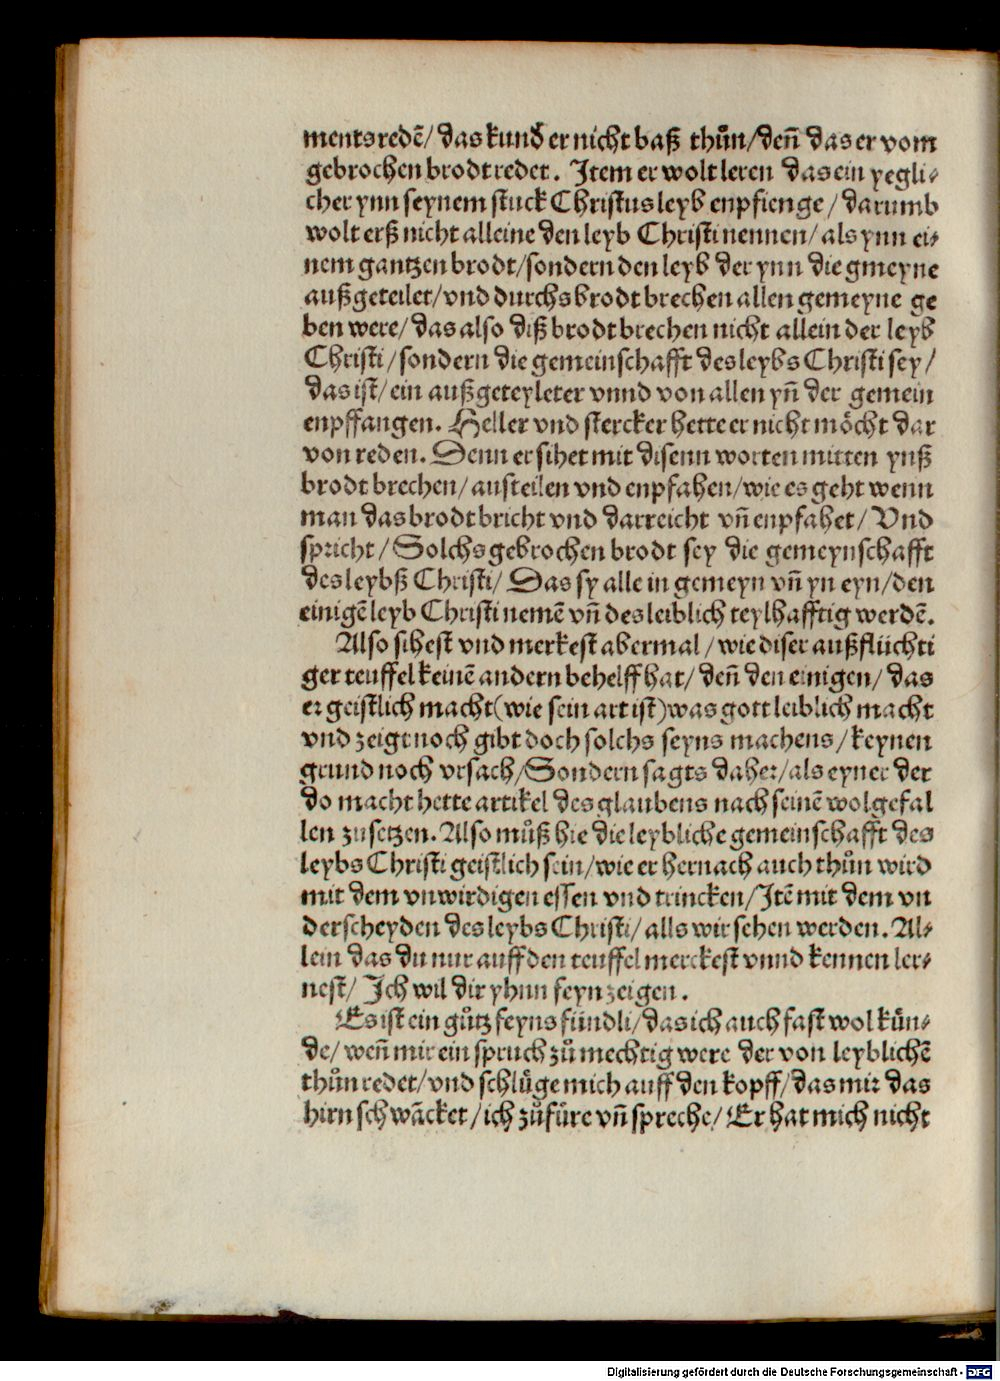 mentsredē/ das kund er nicht baß thůn/ deñ das er vom
gebrochen brodt redet. Item er wolt leren das ein yegli⸗
cher ynn seynem stuck Christus leyb enpfienge/ darumb
wolt erß nicht alleine den leyb Christi nennen/ als ynn ei⸗
nem gantzen brodt/ sondern den leyb der ynn die gmeyne
außgeteilet/ vnd durchs brodt brechen allen gemeyne ge
ben were/ das also diß brodt brechen nicht allein der leyb
Christi/ sondern die gemeinschafft des leybs Christi sey/
das ist/ ein außgeteyleter vnnd von allen yñ der gemein
enpffangen. Heller vnd stercker hette er nicht möcht dar
von reden. Denn er sihet mit disenn worten mitten ynß
brodt brechen/ austeilen vnd enpfahen/ wie es geht wenn
man das brodt bricht vnd darreicht vñ enpfahet/ Vnd
spricht/ Solchs gebrochen brodt sey die gemeynschafft
des leybß Christi/ Das sy alle in gemeyn vñ yn eyn/ den
einigē leyb Christi nemē vñ des leiblich teylhafftig werdē.
Also sihest vnd merkest abermal/ wie diser außflüchti
ger teuffel keinē andern behelff hat/ deñ den einigen/ das
er geistlich macht (wie sein art ist) was gott leiblich macht
vnd zeigt noch gibt doch solchs seyns machens/ keynen
grund noch vrsach/ Sondern sagts daher/ als eyner der
do macht hette artikel des glaubens nach seinē wolgefal
len zusetzen. Also můß hie die leybliche gemeinschafft des
leybs Christi geistlich sein/ wie er hernach auch thůn wird
mit dem vnwirdigen essen vnd trincken/ Itē mit dem vn
derscheyden des leybs Christi/ alls wir sehen werden. Al⸗
lein das du nur auff den teuffel merckest vnnd kennen ler⸗
nest/ Ich wil dir yhnn feyn zeigen.
Es ist ein gůtz feyns fündli/ das ich auch fast wol kün⸗
de/ weñ mir ein spruch zů mechtig were der von leyblichē
thůn redet/ vnd schlüge mich auff den kopff/ das mir das
hirn schwācket/ ich zůfüre vñ spreche/ Er hat mich nicht
Digitalisierung gefördert durch die Deutsche Forschungsgemeinschaft - DFG